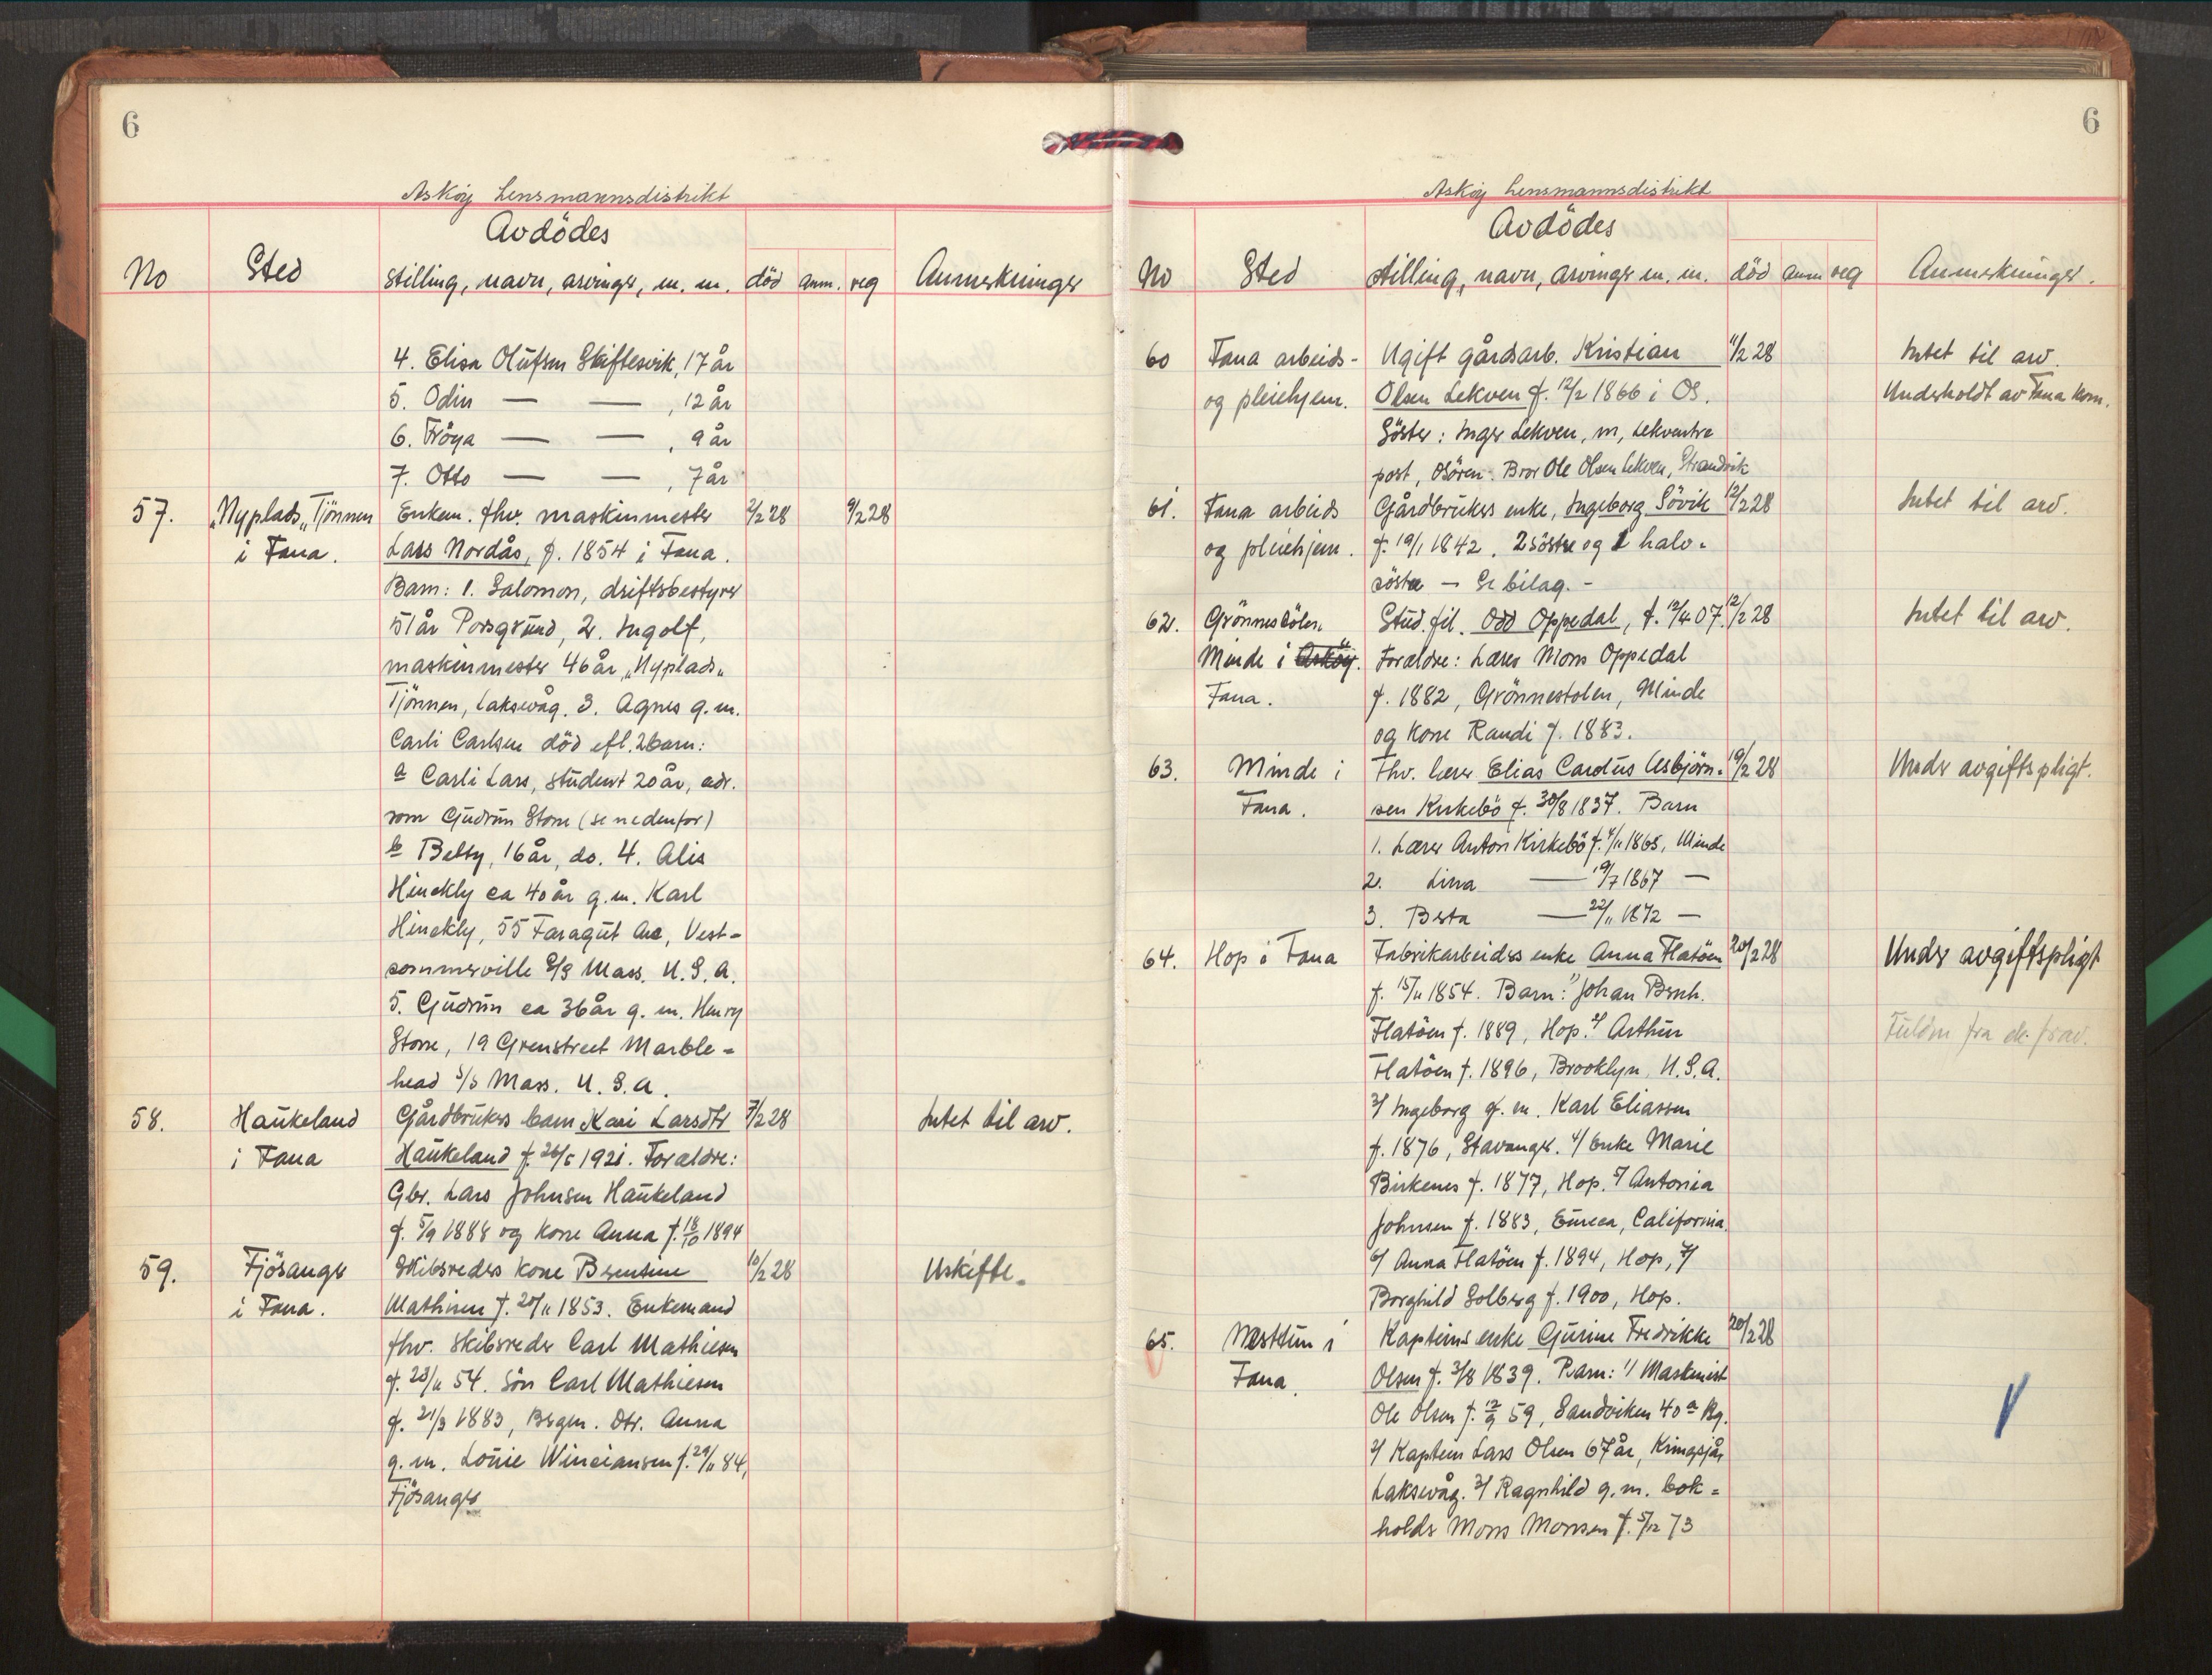 6
Askøy Lensmannsdistrikt
Avdödes
No Sted stilling, navn, arvinger, m. m. död anm. reg Anmerkninger
4. Elisa Olufsen Skiftesvik, 17 år
5. Odin — — , 12 år
6. Fröya — — , 9 år
7. Otto — — , 7 år
57. "Nyplads" Tjönnen Enkem. fhv. maskinmester 2/2 28 9/2 28
i Fana. Lars Nordås, f. 1854 i Fana.
Barn: 1. Salomon, driftsbestyrer
51 år Porsgrund, 2. Ingolf,
maskinmester 46 år, "Nyplads"
Tjönnen, Laksevåg. 3. Agnes g. m.
Carli Carlsen död efl. 2 barn:
a Carli Lars, student 20 år, adr.
som Gudrun Stone (se nedenfor)
b Betty, 16 år, do. 4. Alis
Hinckly ca 40 år g. m. Karl
Hinckly, 55 Faragut Ave, Vest-
sommerville Mass. U. S. A.
5. Gudrun ca 36 år g. m. Henry
Stone, 19 Grenstreet Marble-
head Mass. U. S. A.
58. Haukeland Gårdbrukers barn Kari Larsdtr 7/2 28 Intet til arv.
i Fana Haukeland f. 26/5 1921. Foreldre:
Gbr. Lars Johnsen Haukeland
f. 5/9 1888 og kone Anna f. 18/10 1894
59. Fjösanger Skibsreders kone Berentine 10/2 28 Uskifte.
i Fana. Mathisen f. 20/11 1853. Enkemand
fhv. skibsreder Carl Mathiesen
f. 23/11 54. Sön Carl Mathiesen
f. 21/3 1883, Bergen. Dtr. Anna
g. m. Louie Winciansen f. 29/11 84,
Fjösanger
6
Askøy Lensmannsdistrikt
Avdödes
No Sted stilling, navn, arvinger m. m. död anm reg Anmerkninger.
60 Fana arbeids- Ugift gårdsarb. Kristian 11/2 28 Intet til arv.
og pleiehjem. Olsen Lekven f. 12/2 1866 i Os. Underholdt av Fana kom.
Söster: Inger Lekven, m, Lekventre
post, Osören. Bror Ole Olsen Lekven, Strandvik
61. Fana arbeids Gårdbrukers enke, Ingeborg Sövik 12/2 28 Intet til arv.
og pleiehjem. f. 19/1 1842. 2 söstre og 1 halv-
söster — Se bilag. -
62. Grönnestölen Stud. fil. Odd Oppedal, f. 12/4 07. 12/2 28 Intet til arv.
Minde i Asköy. Foreldre: Lærer Mons Oppedal
Fana. f. 1882, Grönnestolen, Minde
og kone Randi f. 1883.
63. Minde i Fhv. lærer Elias Cardus Asbjörn- 19/2 28 Under avgiftspligt.
Fana. sen Kirkebö f. 30/8 1837. Barn
1. Lærer Anton Kirkebö f. 4/11 1865, Minde
2. Lina — 19/7 1867 —
3. Berta — 22/11 1872 —
64. Hop i Fana Fabrikarbeiders enke Anna Flatöen 20/2 28 Under avgiftspligt
f. 15/11 1854. Barn: 1/ Johan Bernh.
Flatöen f. 1889, Hop. 2/ Arthur
Flatöen f. 1896, Brooklyn, U. S. A.
3/ Ingeborg g. m. Karl Eliassen
f. 1876, Stavanger. 4/ Enke Marie
Birkenes f. 1877, Hop. 5/ Antonia
Johnsen f. 1883, Eureca, California.
6/ Anna Flatöen f. 1894, Hop, 7/
Borghild Solberg f. 1900, Hop.
65. Nesttun i Kapteins enke Gurine Fredrikke 20/2 28
Fana. Olsen f. 3/8 1839. Barn: 1/ Maskinist
Ole Olsen f. 12/9 59, Sandviken 40 a Bg.
2/ Kaptein Lars Olsen 67 år, Kringsjå,
Laksevåg. 3/ Ragnhild g. m. bok-
holder Mons Monsen f. 5/12 73